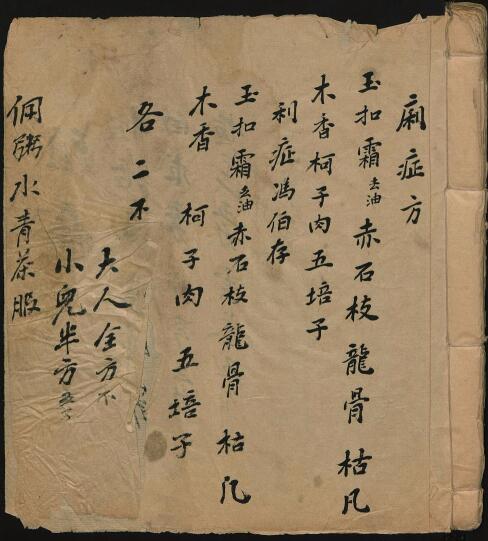 痢症方
玉扣霜去油赤石枝龍骨枯凡
木香柯子肉五培子
利症馮伯存
玉扣霜去油赤石枝龍骨枯凡
木香柯子肉五培子
各二不
大人全方不
小兒半方
粥水青茶服